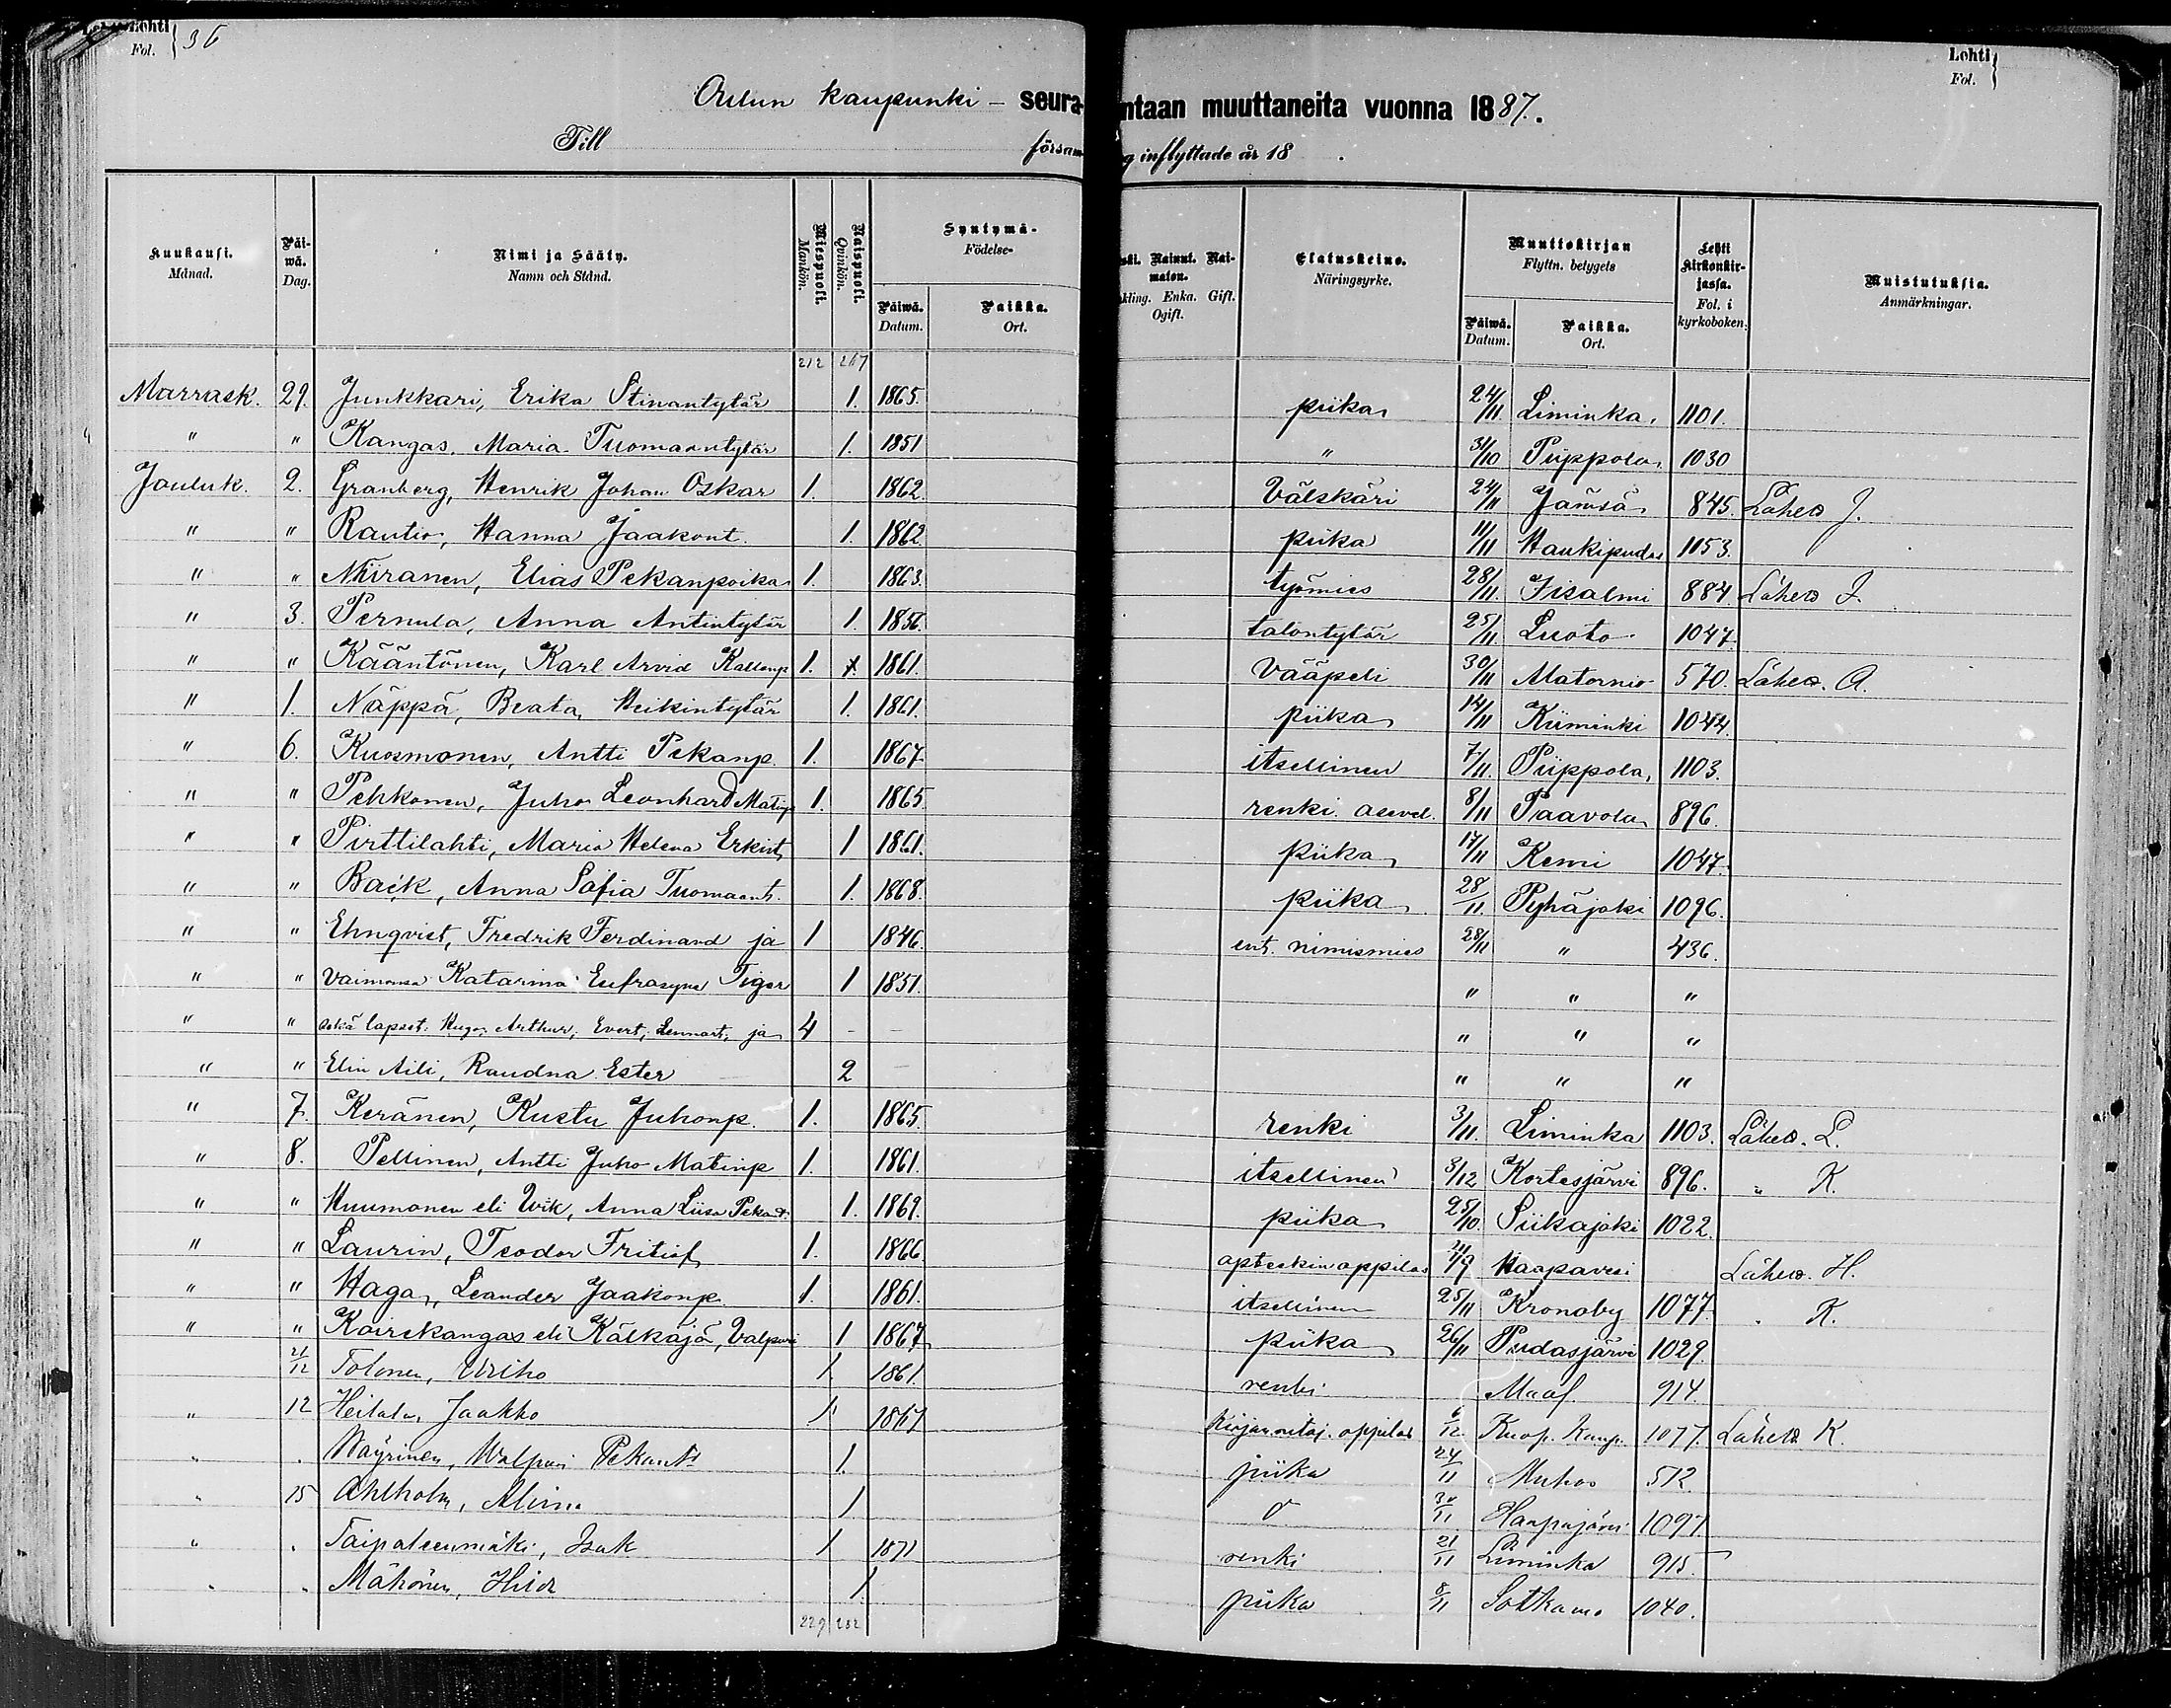 Lohti Fol. 36 Lohti Fol.
Oulun kaupunki - seurantaan muuttaneita vuonna 1887.
Till försam g inflyttade år 18 .
Kuukausi. Månad. Päiwä. Dag. Nimi ja Sääty. Namn och Stånd. Miespuoli. Mankön. Naispuoli. Qvinkön. Syntymä- Födelse- Päiwä. Datum. Paikka. Ort. Nainut. Naimaton. Enka. Gift. Ogift. Elatuskeino. Näringsyrke. Muuttokirjan Flyttn. betygets Päiwä. Datum. Paikka. Ort. Lehti Kirkonkirjassa. Fol. i kyrkoboken. Muistutuksia. Anmärkningar.
212 267
Marrask. 29. Junkkari, Erika Stinantytär 1. 1865. piika 24/11. Liminka. 1101.
" " Kangas, Maria Tuomaantytär 1. 1851 " 31/10 Piippola, 1030
Jouluk. 2. Granberg, Henrik Johan Oskar 1. 1862. Välskäri 24/11 Jämsä 845. Läheb J.
" " Rautio, Hanna Jaakont. 1. 1862. piika 11/11 Haukipudas 1153.
" " Niiranen, Elias Pekanpoika 1. 1863. työmies 28/11. Iisalmi 884. Läheb I.
" 3. Pernula, Anna Antintytär 1. 1856. talontytär 25/11. Luoto 1047.
" " Kääntönen, Karl Arvid Kallenp 1. 1861. Vääpeli 30/11 Alatornio 570. Läheb. A.
" 1. Näppä, Beata, Heikintytär 1. 1861. piika 14/11 Kiiminki 1044.
" 6. Kuosmonen, Antti Pekanp. 1. 1867. itsellinen 7/11. Piippola, 1103.
" " Pehkonen, Juho Leonhard Matinp 1. 1865 renki. asevel. 8/11 Paavola 896.
" " Pirttilahti, Maria Helena Erkint 1 1861. piika 17/11 Kemi 1047.
" " Back, Anna Sofia Tuomaant. 1. 1868. piika 28/11. Pyhäjoki 1096.
" " Ehnqvist, Fredrik Ferdinand ja 1 1846. ent. nimismies 28/11 " 436.
" " Vaimonsa Katarina Eufrasyne Tiger 1 1851. " " "
" " sekä lapset: Hugo, Arthur, Evert, Lennart, ja 4 - - " " "
" " Elin Aili, Raudna Ester 2 - " " "
" 7. Keränen, Kustu Juhonp. 1. 1865. renki 3/11. Liminka 1103. Läheb. L.
" 8. Pellinen, Antti Juho Matinp 1. 1861. itsellinen 3/12 Kortesjärvi 896. " K.
" " Huumonen eli Wik, Anna Liisa Pekant. 1. 1869. piika 25/10. Siikajoki 1022.
" " Laurin, Teodor Fritiof 1. 1866. apteekin oppilas /9 Haapavesi Läheb. H.
" " Haga, Leander Jaakonp. 1. 1861. itsellinen 25/11 Kronoby 1077. " K.
" " Koirikangas eli Kälkäjä, Valpuri 1 1867. piika 26/11 Pudasjärvi 1029.
21/12 Tolonen, Uriho 1. 1861. renki Maas. 914.
" 12 Heitala, Jaakko 1. 1867 Kirjansitoj. oppilas 6/12 Kuop. kaup. 1077. Läheb K.
" . Wäyrinen, Walpuri Pekant 1. piika 24/11 Muhos 512.
" 15 Ahlholm, Alina 1 " 30/11 Haapajärvi 1097
" . Taipaleenmäki, Isak 1 1871 renki 21/11 Liminka 915.
" . Mähönen, Hilda 1. piika 8/11 Sotkamo 1040.
229 282